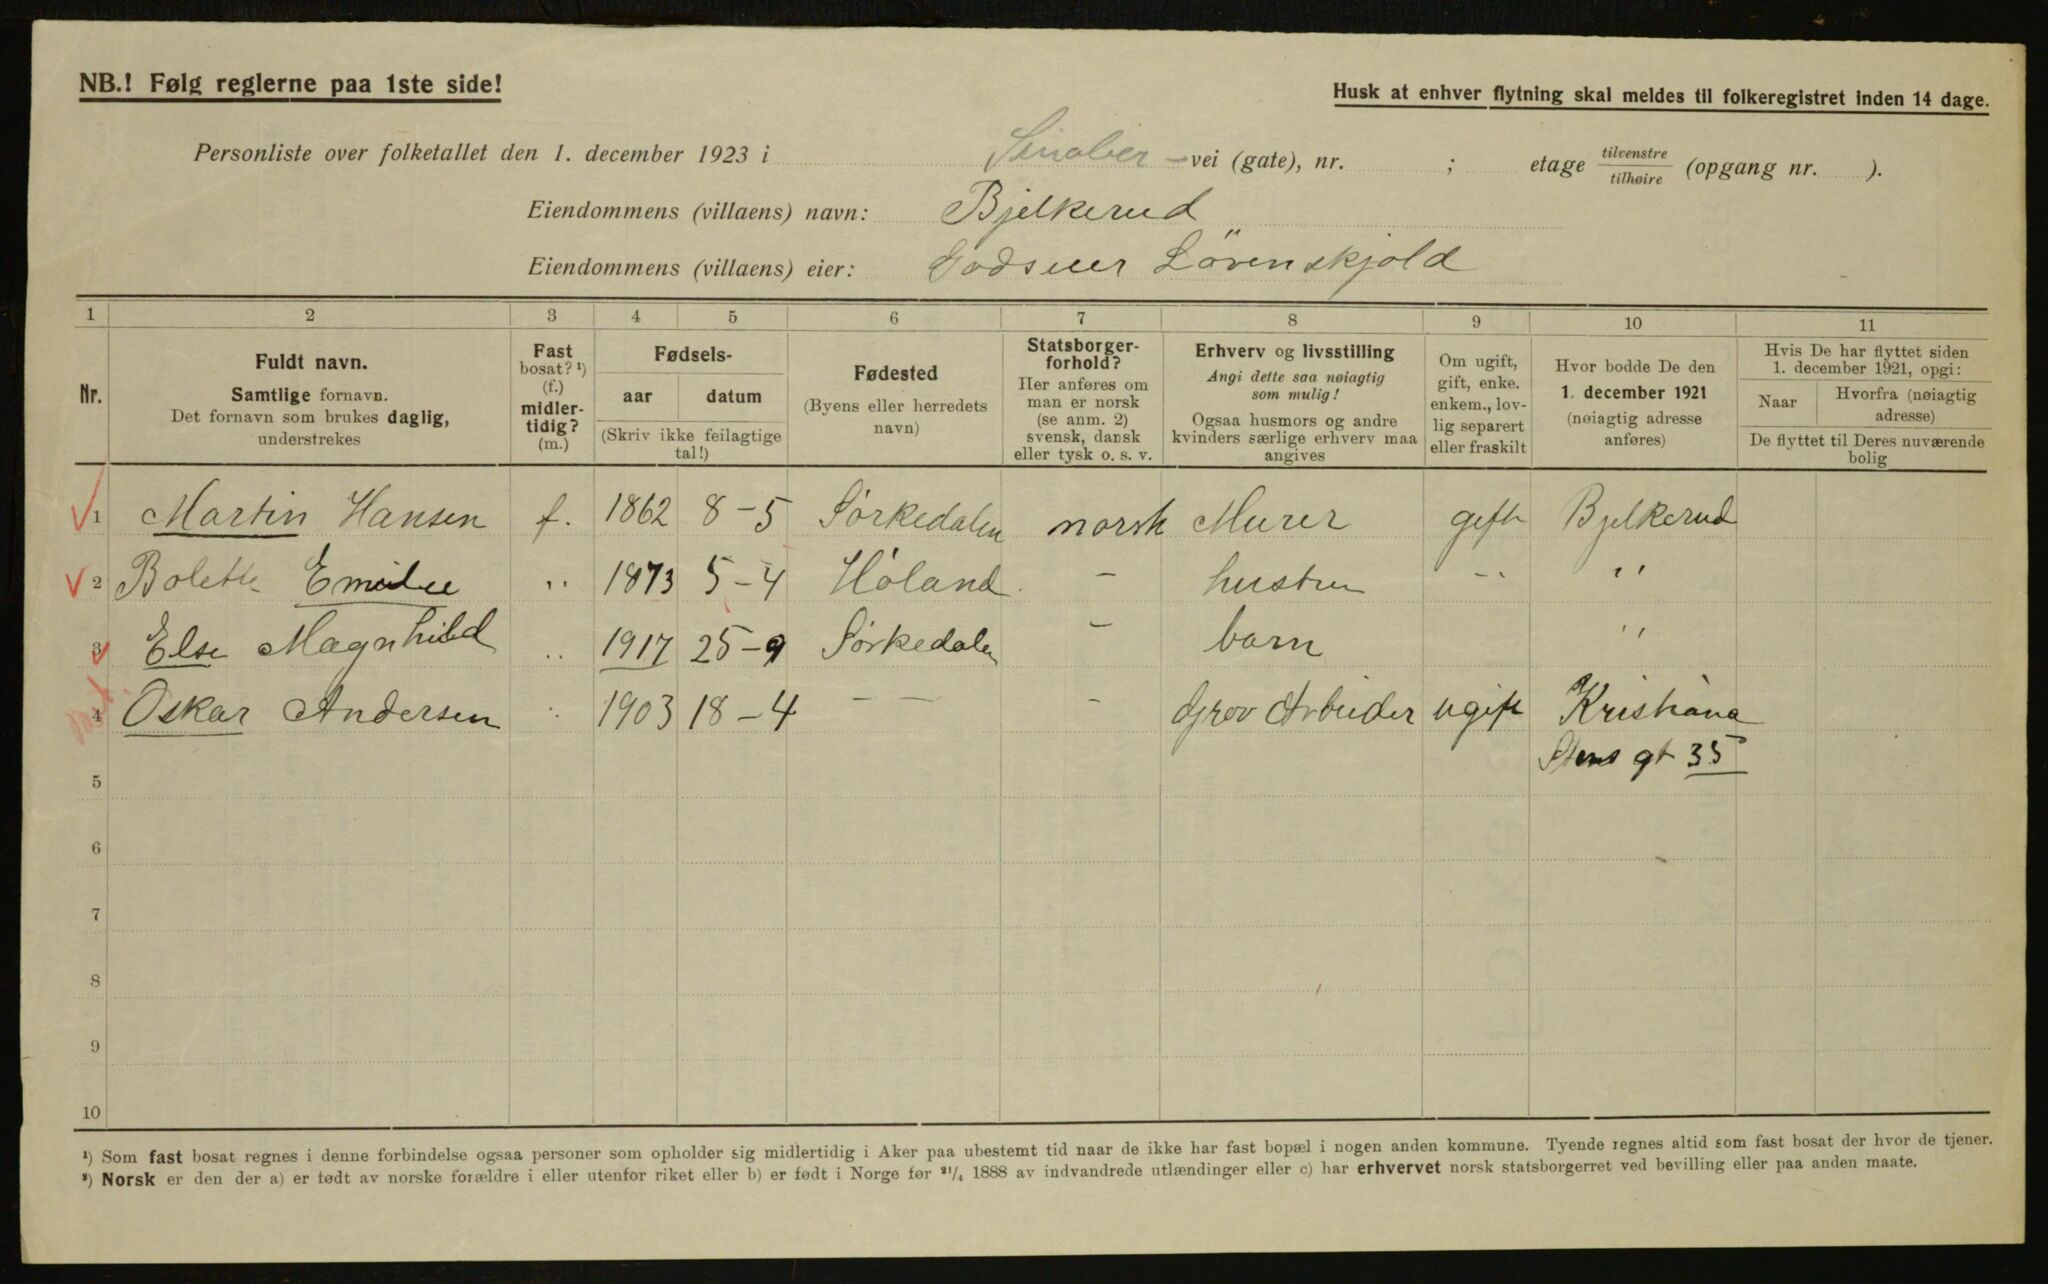 NB.! Følg reglerne paa 1ste side!
Husk at enhver flytning skal meldes til folkeregistret inden 14 dage.
Personliste over folketallet den 1. december 1923 i Sinober - vei (gate), nr. ; etage tilvenstre / tilhøire (opgang nr. ).
Eiendommens (villaens) navn: Bjelkerud
Eiendommens (villaens) eier: Godseier Lövenskjold
1 2 3 4 5 6 7 8 9 10 11
Nr.
Fuldt navn.
Samtlige fornavn.
Det fornavn som brukes daglig,
understrekes
Fast
bosat? ¹)
(f.)
midler-
tidig?
(m.)
Fødsels-
aar datum
(Skriv ikke feilagtige
tal!)
Fødested
(Byens eller herredets
navn)
Statsborger-
forhold?
Her anføres om
man er norsk
(se anm. 2)
svensk, dansk
eller tysk o. s. v.
Erhverv og livsstilling
Angi dette saa nøiagtig
som mulig!
Ogsaa husmors og andre
kvinders særlige erhverv maa
angives
Om ugift,
gift, enke.
enkem., lov-
lig separert
eller fraskilt
Hvor bodde De den
1. december 1921
(nøiagtig adresse
anføres)
Hvis De har flyttet siden
1. december 1921, opgi:
Naar
Hvorfra (nøiagtig
adresse)
De flyttet til Deres nuværende
bolig
1 Martin Hansen f. 1862 8-5 Sørkedalen norsk Murer gift Bjelkerud
2 Bolette Emilie " 1873 5-4 Høland - hustru -"- "
3 Else Magnhild " 1917 25-9 Sørkedalen - barn "
4 Oskar Andersen " 1903 18-4 — — - Grov Arbeider ugift Kristiana
Stens gt 35
5
6
7
8
9
10
¹) Som fast bosat regnes i denne forbindelse ogsaa personer som opholder sig midlertidig i Aker paa ubestemt tid naar de ikke har fast bopæl i nogen anden kommune. Tyende regnes altid som fast bosat der hvor de tjener.
²) Norsk er den der a) er født av norske forældre i eller utenfor riket eller b) er født i Norge før ²¹/₄ 1888 av indvandrede utlændinger eller c) har erhvervet norsk statsborgerret ved bevilling eller paa anden maate.